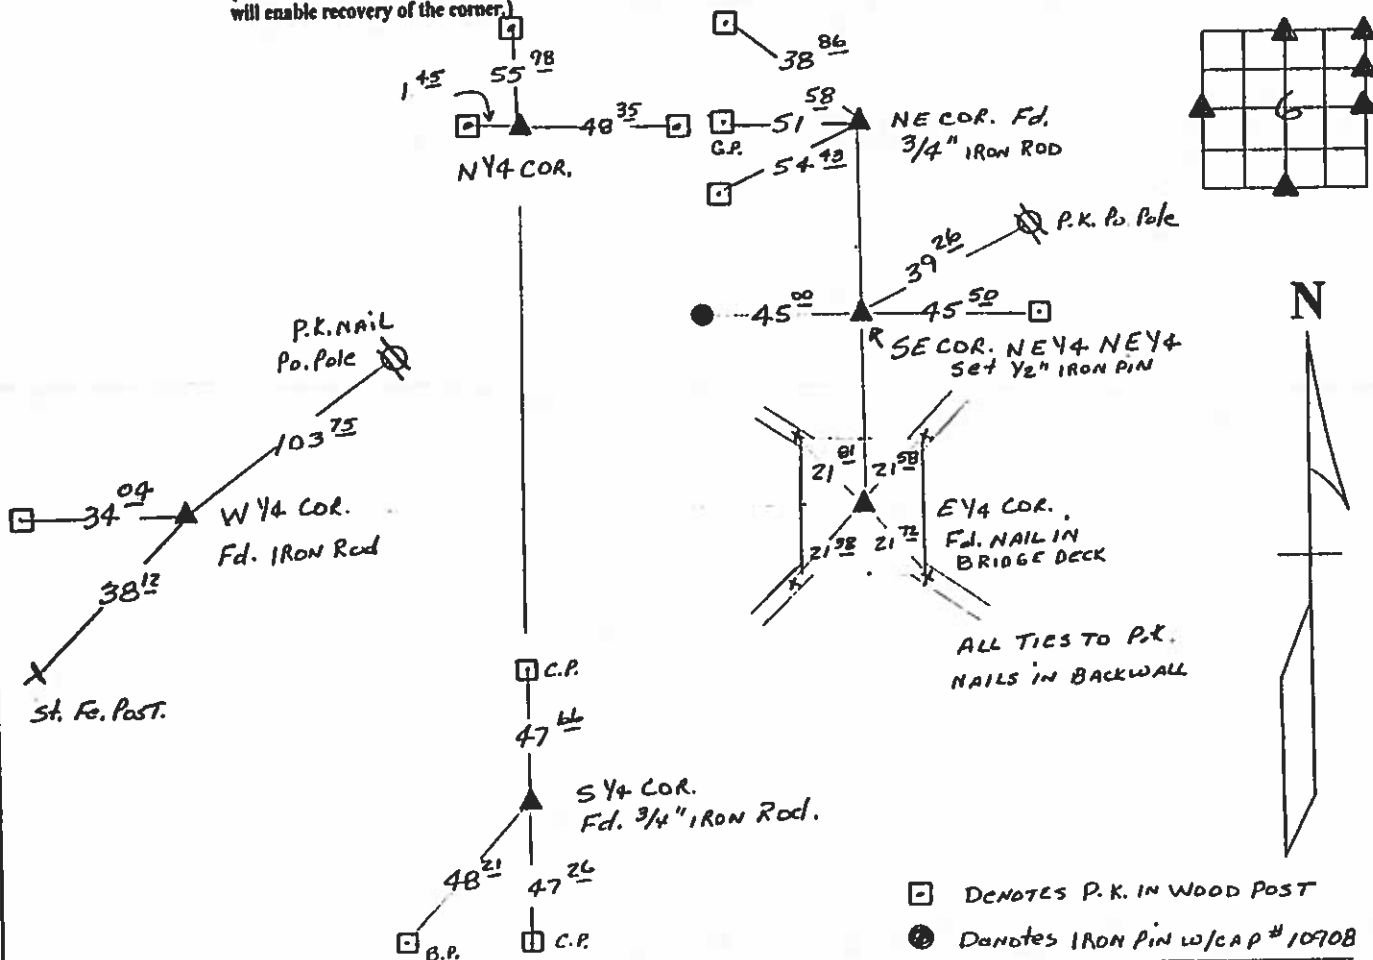 will enable recovery of the corner.)
55 98
1 45
48 35
N 1/4 COR.
38 86
51 58
C.P.
54 43
NE COR. Fd.
3/4" IRON ROD
6
P.K. Po. Pole
39 26
45 00
45 50
R
SE COR. NE 1/4 NE 1/4
Set 1/2" IRON PIN
N
P.K. NAIL
Po. Pole
103 75
34 04
W 1/4 COR.
Fd. IRON Rod
38 12
St. Fe. POST.
21 81
21 58
21 98
21 72
E 1/4 COR.
Fd. NAIL IN
BRIDGE DECK
ALL TIES TO P.K.
NAILS IN BACKWALL
C.P.
47 66
S 1/4 COR.
Fd. 3/4" IRON Rod.
48 21
47 26
B.P.
C.P.
DENOTES P.K. IN WOOD POST
Denotes IRON PIN W/CAP # 10908